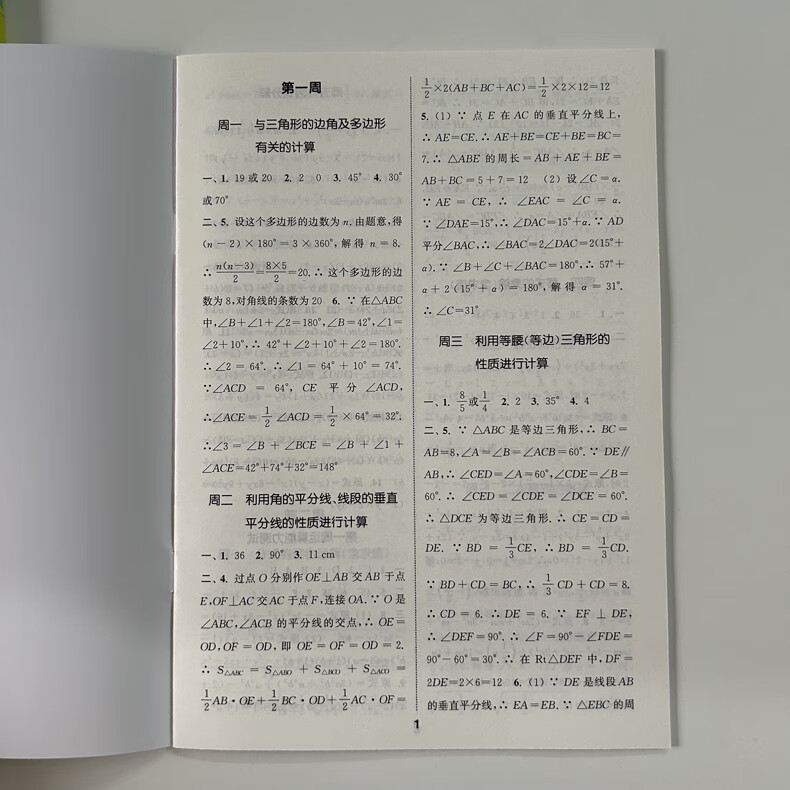 第一周
周一 与三角形的边角及多边形
有关的计算
一、1. 19 或 20 2. 2 0 3. 45° 4. 30°
或 70°
二、5. 设这个多边形的边数为 n. 由题意,得
(n-2)×180°=3×360°,解得 n=8.
∴ n(n-3)/2=8×5/2=20.∴ 这个多边形的边
数为 8,对角线的条数为 20 6. ∵ 在△ABC
中,∠B+∠1+∠2=180°,∠B=42°,∠1=
∠2+10°,∴ 42°+∠2+10°+∠2=180°.
∴ ∠2 = 64°. ∴ ∠1 = 64° + 10° = 74°.
∵∠ACD = 64°, CE 平分 ∠ACD,
∴∠ACE=1/2∠ACD=1/2×64°=32°.
∴∠3 = ∠B + ∠BCE = ∠B + ∠1 +
∠ACE=42°+74°+32°=148°
周二 利用角的平分线、线段的垂直
平分线的性质进行计算
一、1. 36 2. 90° 3. 11 cm
二、4. 过点 O 分别作 OE⊥AB 交 AB 于点
E,OF⊥AC 交 AC 于点 F,连接 OA.∵ O 是
∠ABC,∠ACB 的平分线的交点,∴ OE=
OD,OF = OD,即 OE = OF = OD = 2.
∴ S△ABC = S△ABO + S△BCO + S△ACO =
1/2AB·OE+1/2BC·OD+1/2AC·OF=
1/2×2(AB+BC+AC)=1/2×2×12=12
5. (1) ∵ 点 E 在 AC 的垂直平分线上,
∴ AE=CE.∴ AE+BE=CE+BE=BC=
7.∴ △ABE 的周长=AB+AE+BE=
AB+BC=5+7=12 (2) 设∠C=α.
∵ AE = CE,∴ ∠EAC = ∠C = α.
∵ ∠DAE=15°,∴ ∠DAC=15°+α.∵ AD
平分∠BAC,∴ ∠BAC=2∠DAC=2(15°+
α).∵ ∠B+∠C+∠BAC=180°,∴ 57°+
α + 2(15° + α) = 180°,解得 α = 31°.
∴ ∠C=31°
周三 利用等腰(等边)三角形的
性质进行计算
一、1. 8/5或1/4 2. 2 3. 35° 4. 4
二、5. ∵ △ABC 是等边三角形,∴ BC=
AB=8,∠A=∠B=∠ACB=60°.∵ DE∥
AB,∴ ∠CED=∠A=60°,∠CDE=∠B=
60°. ∴ ∠CED = ∠CDE = ∠DCE = 60°.
∴ △DCE 为等边三角形. ∴ CE = CD =
DE. ∵ BD = 1/3CE,∴ BD = 1/3CD.
∵ BD + CD = BC,∴ 1/3CD + CD = 8.
∴ CD = 6. ∴ DE = 6. ∵ EF ⊥ DE,
∴ ∠DEF= 90°. ∴ ∠F = 90° - ∠FDE =
90°-60°=30°.∴ 在 Rt△DEF 中,DF=
2DE=2×6=12 6. (1) ∵ DE 是线段 AB
的垂直平分线,∴ EA=EB.∵ △EBC 的周
1